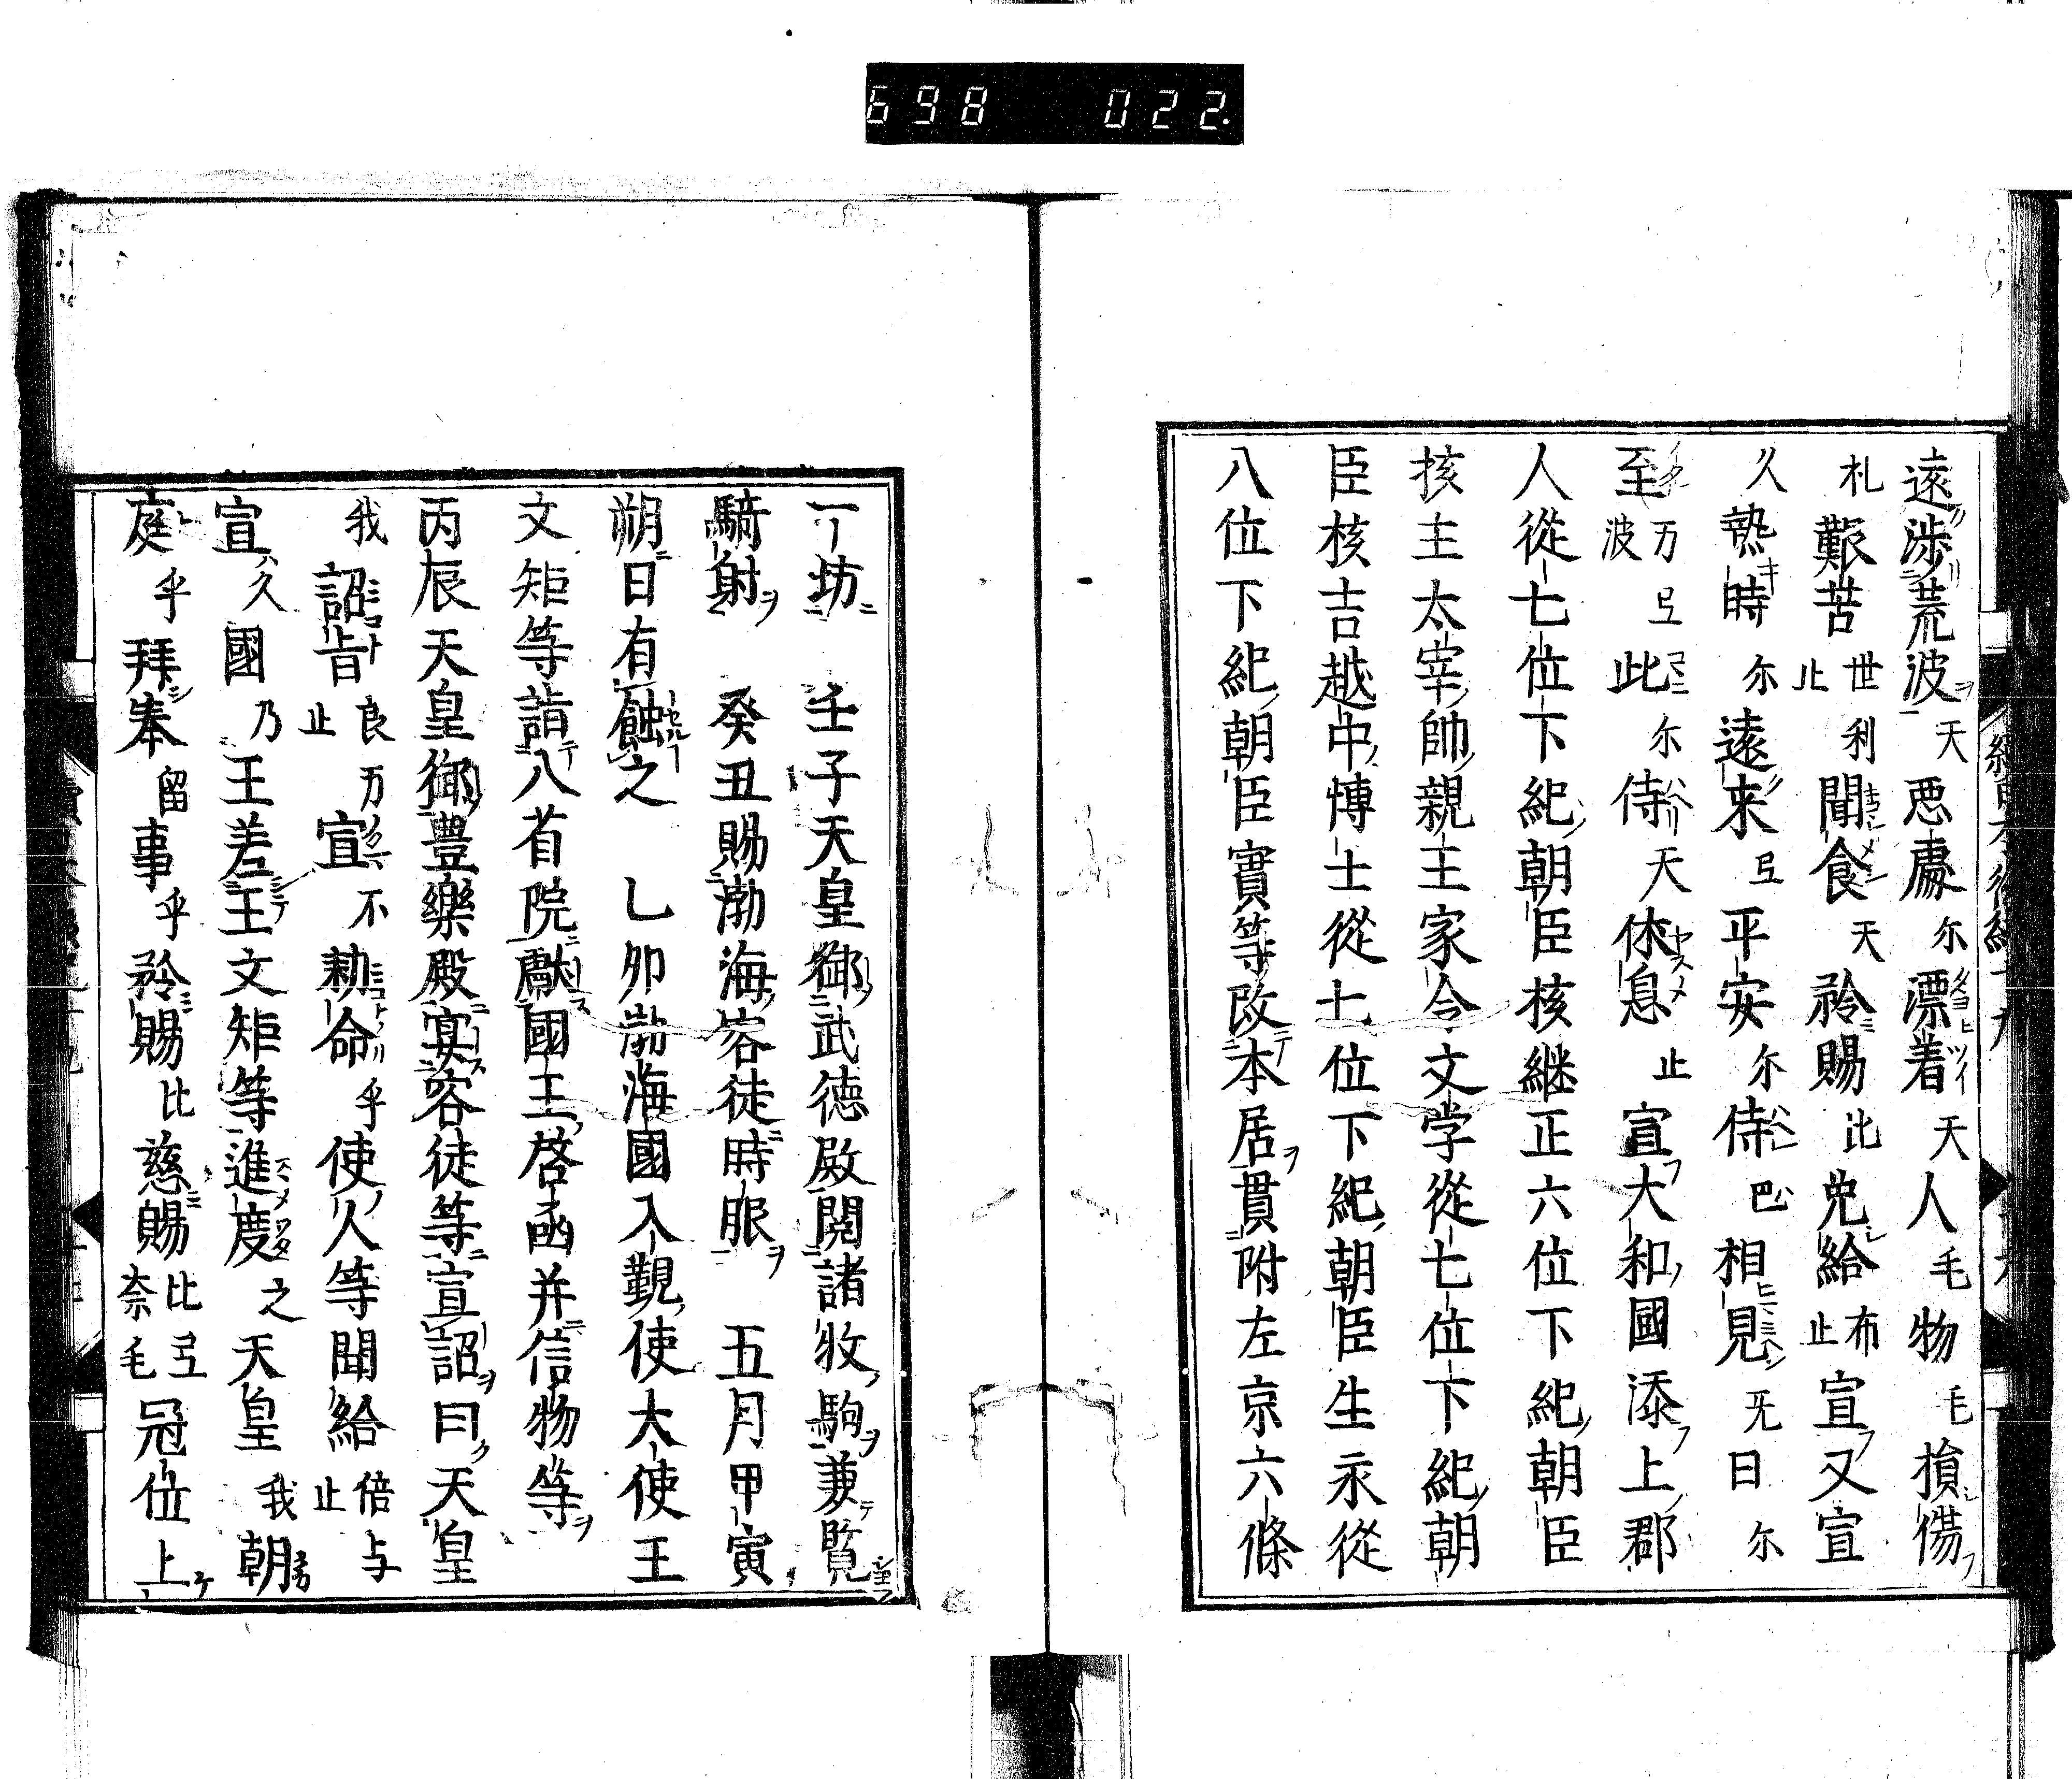 698 022
遠渉荒波天悪處尓漂着天人毛物毛損傷
札艱苦世止利聞食天矜賜比免給布止宣又宣
久熱時尓遠来弖平安尓侍巴相見无日尓
至万波弖此尓侍天休息止宣大和國添上郡
人從七位下紀朝臣核継正六位下紀朝臣
核主太宰帥親王家令文学從七位下紀朝
臣核吉越中博士從七位下紀朝臣生永從
八位下紀朝臣實等改本居貫附左京六條
一丁坊 壬子天皇御武徳殿閲諸牧駒兼覧
騎射 癸丑賜渤海客徒時服 五月甲寅
朔日有蝕之 乙卯渤海國入覲使大使王
文矩等詣八省院献國王啓函并信物等
丙辰天皇御豊樂殿宴客徒等宣詔曰天皇
我詔旨良止万宣不勅命乎使人等聞給倍止与
宣久國乃王差王文矩等進度之天皇我朝
庭乎拜奉留事乎矜賜比慈賜比奈弖毛冠位上